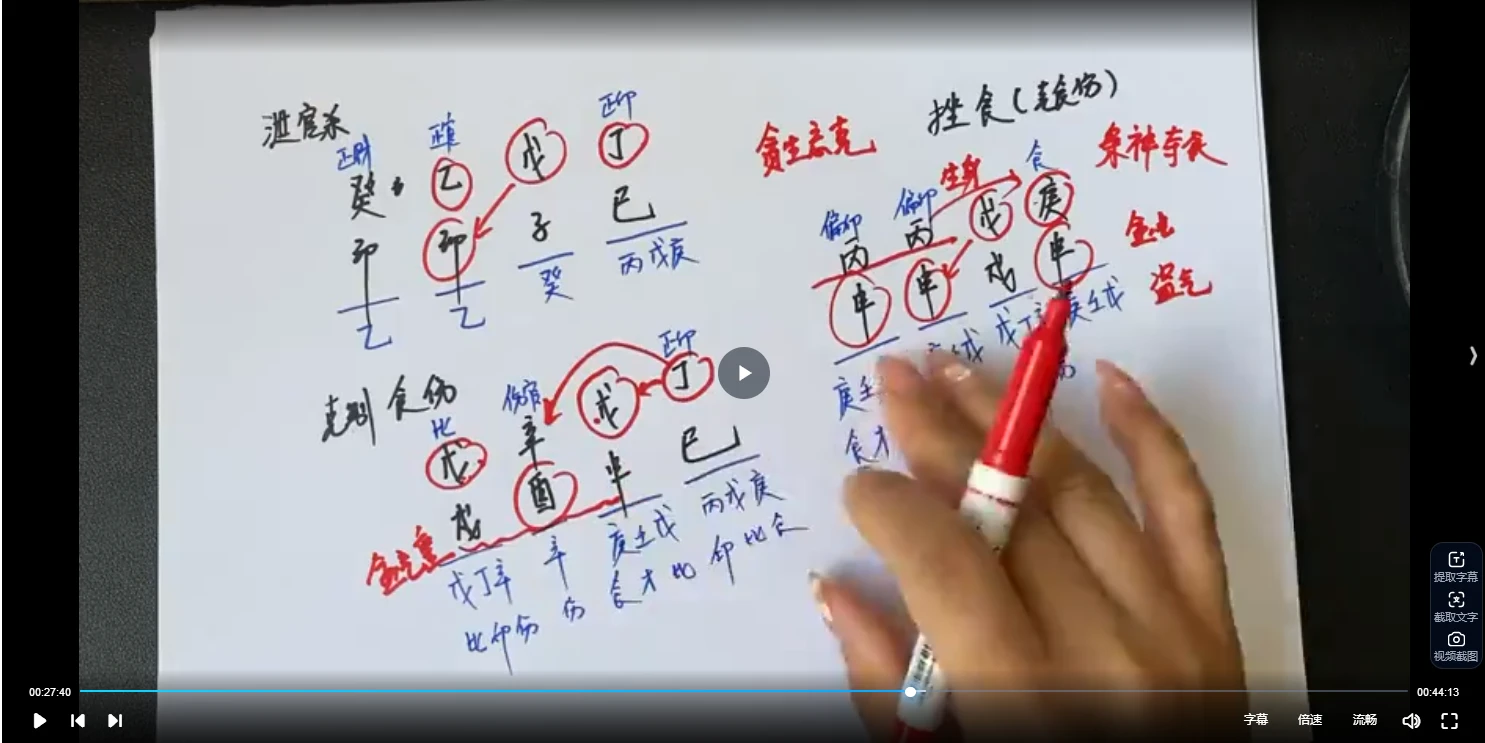 泄官杀
正财 正官 正印
癸 乙 戊 丁
卯 卯 子 巳
乙 乙 癸 丙戊庚
克制食伤
比 伤官 正印
戊 辛 戊 丁
戌 酉 申 巳
金气重
戊丁辛 辛 庚壬戊 丙戊庚
比印伤 伤 食才比 印比食
挫食(克食伤)
贪生忘克
枭神夺食
生身
偏印 偏印 食
丙 丙 戊 庚
申 申 戌 申
金气
盗气
庚壬 壬戊 戊丁 庚壬戊
食才
00:27:40
00:44:13
字幕 倍速 流畅
提取字幕
截取文字
视频截图